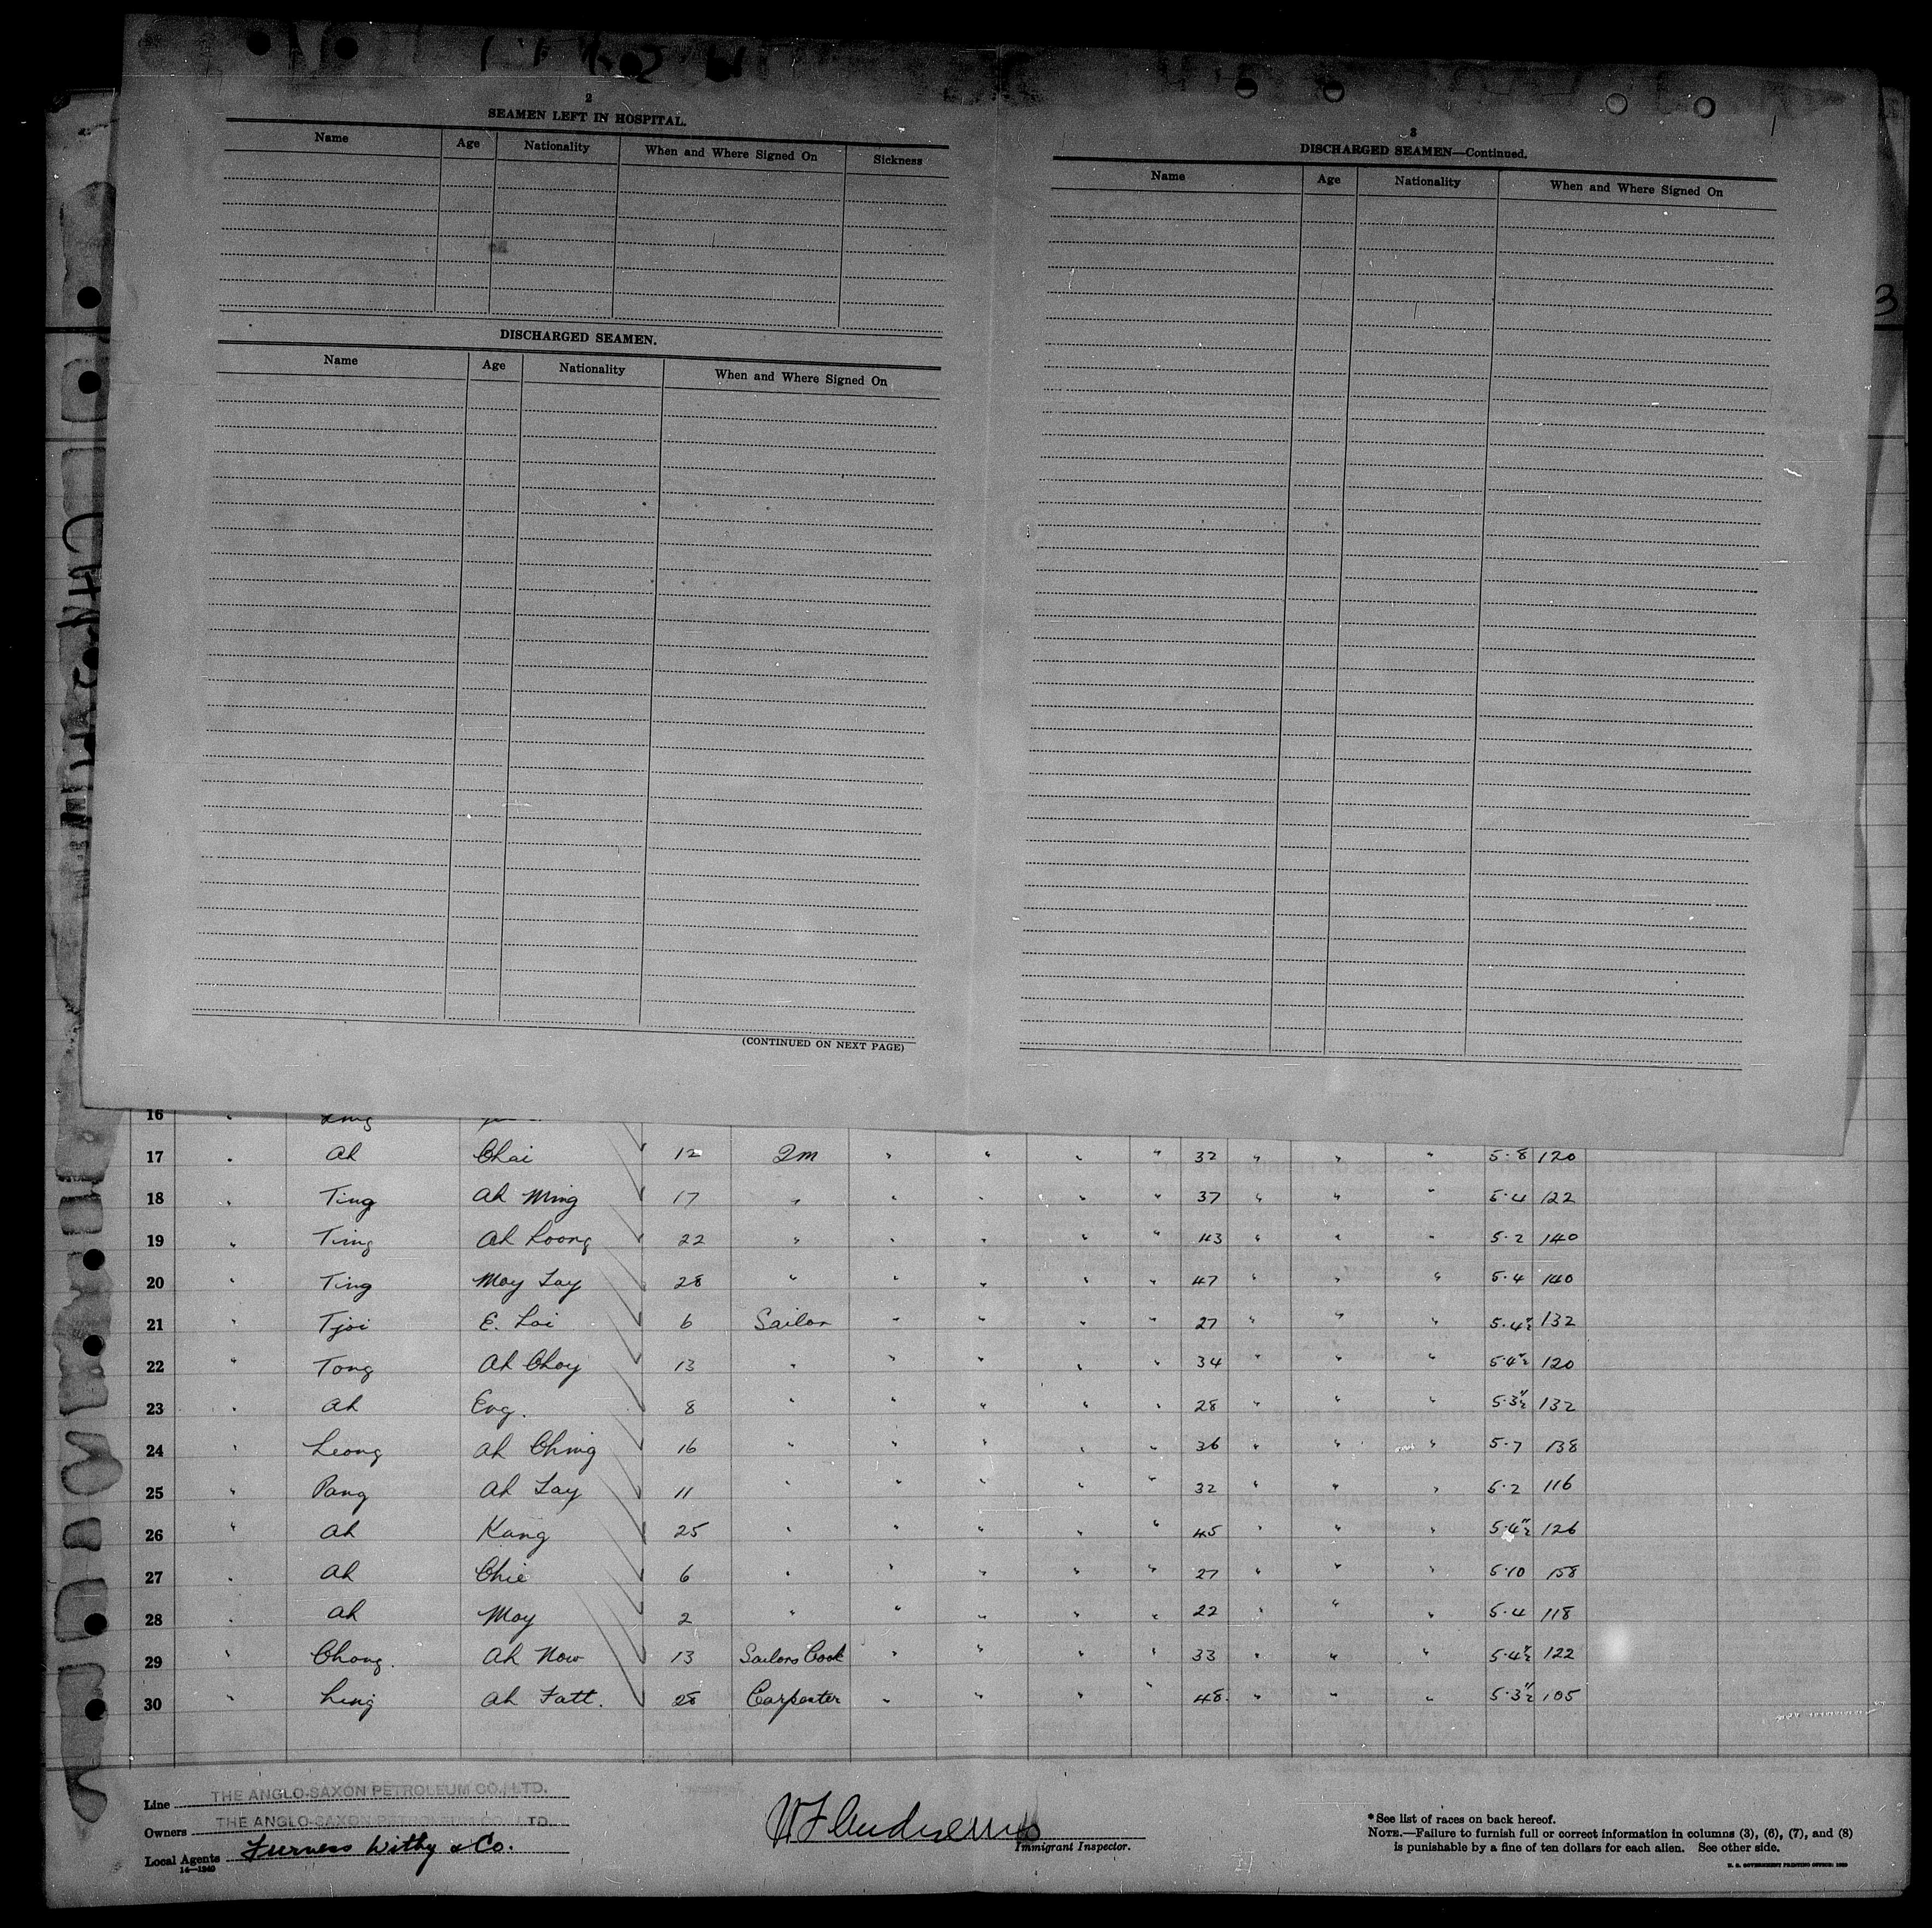 2
SEAMEN LEFT IN HOSPITAL.
Name Age Nationality When and Where Signed On Sickness
DISCHARGED SEAMEN.
Name Age Nationality When and Where Signed On
(CONTINUED ON NEXT PAGE)
3
DISCHARGED SEAMEN—Continued.
Name Age Nationality When and Where Signed On
3
16 "
17 " Ah Chai 12 2m " " " " 32 " " " 5·8 120
18 " Ting Ah Ming 17 " " " " " 37 " " " 5·4 122
19 " Ting Ah Loong 22 " " " " " 43 " " " 5·2 140
20 " Ting Moy Lay 28 " " " " " 47 " " " 5·4 140
21 " Tjoi E. Loi 6 Sailor " " " " 27 " " " 5·4½" 132
22 " Tong Ah Choy 13 " " " " " 34 " " " 5·4½" 120
23 " Ah Eng. 8 " " " " " 28 " " " 5·3½" 132
24 " Leong Ah Ching 16 " " " " " 36 " " " 5·7 138
25 " Pang Ah Lay 11 " " " " " 32 " " " 5·2 116
26 " Ah Kang 25 " " " " " 45 " " " 5·4½" 126
27 " Ah Chie 6 " " " " " 27 " " " 5·10 158
28 " Ah Moy 2 " " " " " 22 " " " 5·4 118
29 " Chong. Ah Now 13 Sailors Cook " " " " 33 " " " 5·4½" 122
30 " Ling Ah Fatt. 28 Carpenter " " " " 48. " " " 5·3½" 105
Line THE ANGLO-SAXON PETROLEUM CO., LTD.
Owners THE ANGLO-SAXON PETROLEUM CO., LTD.
Local Agents Furness Withy & Co.
14—1240
Immigrant Inspector.
*See list of races on back hereof.
NOTE.—Failure to furnish full or correct information in columns (3), (6), (7), and (8)
is punishable by a fine of ten dollars for each alien. See other side.